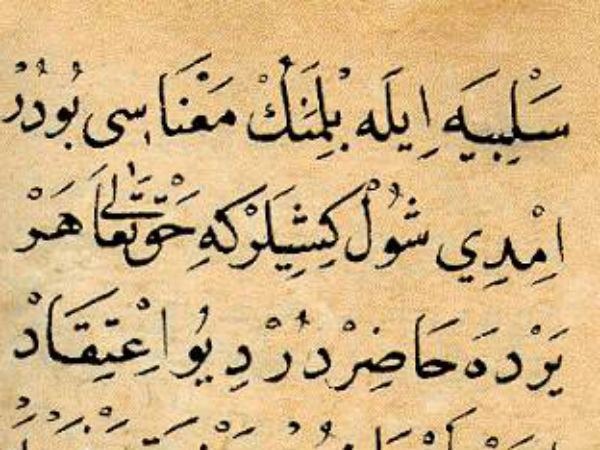 سَلْبِيَه اِيلَه بِلْمَنِكْ مَعْنَاسِى بُودُرْ
اِمْدِي شُولْ كِشِيلَرْكِه حَقْ تَعَالَى هَرْ
يَرْدَه حَاضِرْدُرْ دِيُو اِعْتِقَادْ